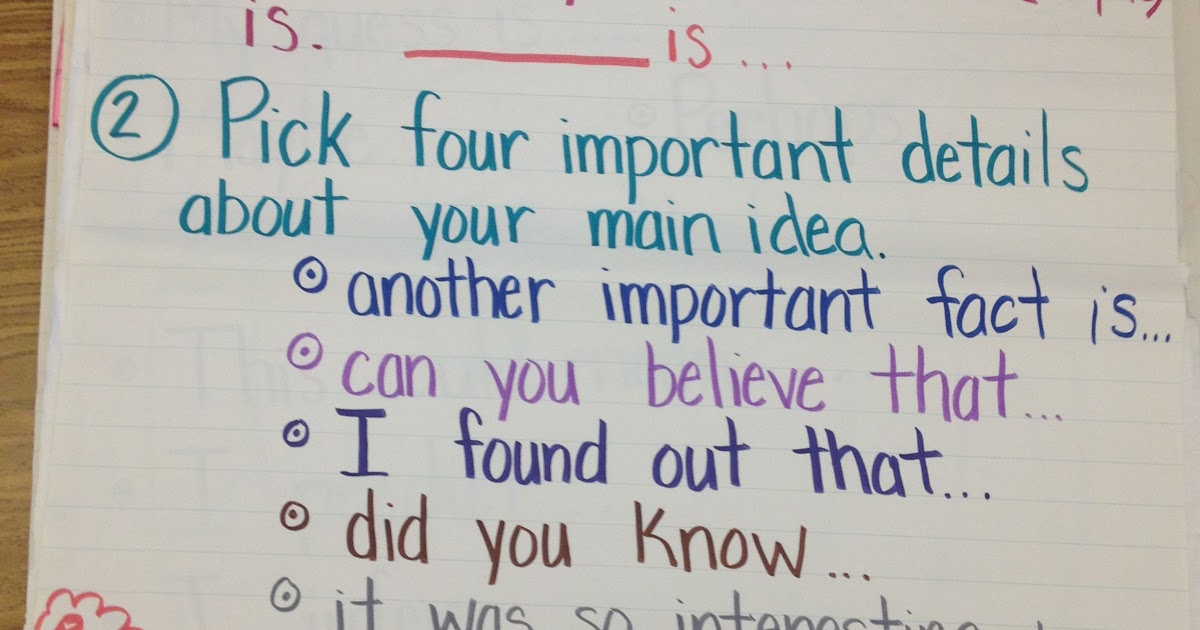 is. ________ is...
② Pick four important details
about your main idea.
⊙ another important fact is...
⊙ can you believe that...
⊙ I found out that...
⊙ did you know...
⊙ it was so interesting